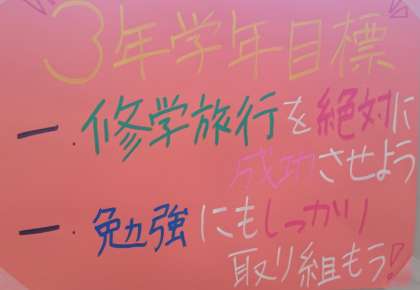 3年学年目標
一.修学旅行を絶対に
成功させよう
一.勉強にもしっかり
取り組もう!